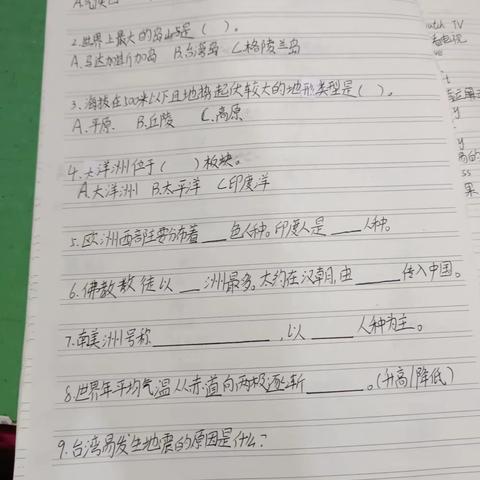 2.世界上最大的岛屿是（ ）。
A.马达加斯加岛 B.台湾岛 C.格陵兰岛
3.海拔在500米以下且地势起伏较大的地形类型是（ ）。
A.平原. B.丘陵 C.高原
4.大洋洲位于（ ）板块。
A.大洋洲 B.太平洋 C.印度洋
5.欧洲西部主要分布着___色人种。印度人是___人种。
6.佛教教徒以__洲最多。大约在汉朝,由____传入中国。
7.南美洲号称__________,以____人种为主。
8.世界年平均气温从赤道向两极逐渐_____。(升高/降低)
9.台湾易发生地震的原因是什么?
watch TV
看电视